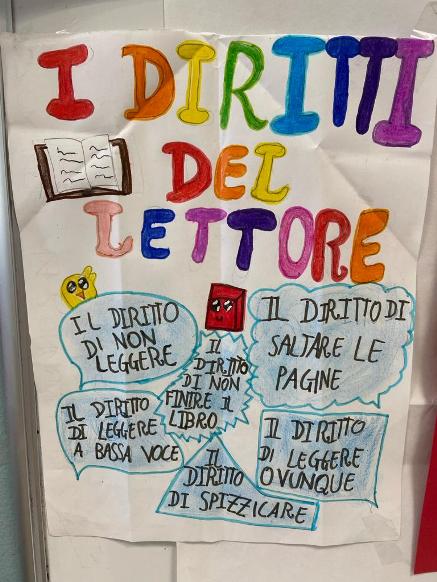 I DIRITTI
DEL
LETTORE
IL DIRITTO
DI NON
LEGGERE
IL
DIRITTO
DI NON
FINIRE IL
LIBRO
IL DIRITTO DI
SALTARE LE
PAGINE
IL DIRITTO
DI LEGGERE
A BASSA VOCE
IL
DIRITTO
DI SPIZZICARE
IL DIRITTO
DI LEGGERE
OVUNQUE